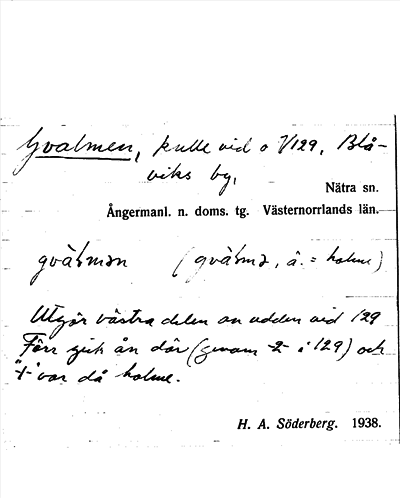 Gvalmen, kulle vid o V129, Blå-
viks by,
Nätra sn.
Ångermanl. n. doms. tg. Västernorrlands län.
gvàɫmən (gvàɫmə, â. = holme)
Utgör västra delen av udden vid 129
Förr gick ån där (genom -2- i 129) och
"-"var då holme.
H. A. Söderberg. 1938.